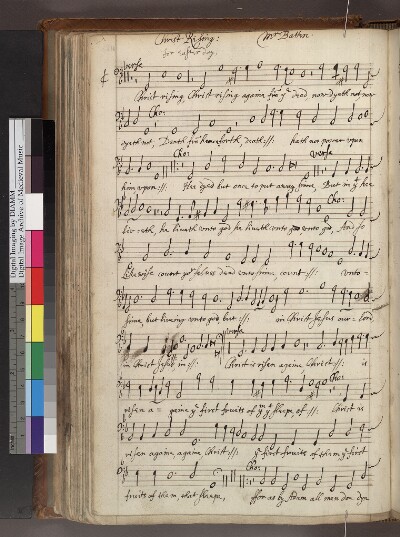 Christ Rising: Mr Batten
for easter day.
verse
Christ rising Christ rising againe fro ye dead now dyeth not now
Cho:
dyeth not, Death fro henceforth death ://: hath not power upon
Cho: verse
him upon ://: Hee dyed but once to put away sinne, But in yt hee
Cho:
liveth, he liveth unto god he liveth unto god unto god, And so
likewise count yor selves dead unto sinne, count ://: unto
sinne, but liveing unto god, but ://: in Christ Jesus our Lord
verse
in Christ Jesus in ://: Christ is risen againe Christ ://: is
Cho:
risen againe ye first fruits of ym yt sleepe, of ://: Christ is
risen againe againe Christ ://: ye first fruits of them ye first
Cho:
fruits of them that sleepe, ffor as by Adam all men doe dye
Digital Imaging by DIAMM
Digital Image Archive of Medieval Music